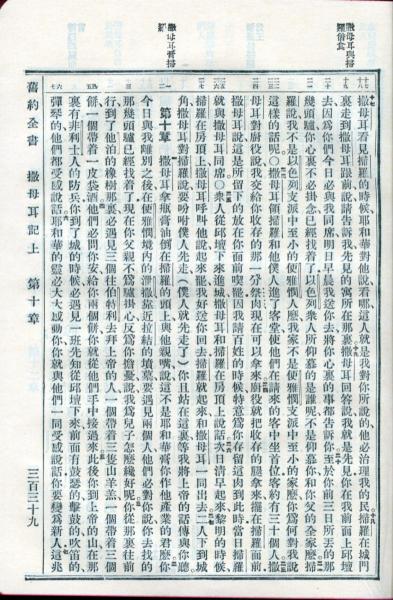 撒母耳與掃
羅偕食
撒母耳膏掃
羅
撒母耳看見掃羅的時候、耶和華對他說、看哪、這人就是我對你所說的、他必治理我的民。掃羅在城門
裏走到撒母耳跟前、說、請告訴我先見的寓所在那裏。撒母耳回答說、我就是先見、你在我前面上邱壇
去、因爲你們今日必與我同席、明日早晨我送你去、將你心裏的事都告訴你。至於你前三日所丟的那
幾頭驢、你心裏不必掛念、已經找着了。以色列衆人所仰慕的是誰呢、不是仰慕你和你父的全家麼。掃
羅說、我不是以色列支派中至小的便雅憫人麼、我家不是便雅憫支派中至小的家麼、你爲何對我說
這樣的話呢。〇撒母耳領掃羅和他僕人進了客堂、使他們在請來的客中坐首位、客約有三十個人。撒
母耳對廚役說、我交給你收存的那一分祭肉、現在可以拿來。廚役就把收存的腿拿來、擺在掃羅面前、
撒母耳說、這是所留下的、放在你面前、喫罷、因我請百姓的時候、特意爲你存留這肉、到此時、當日掃羅
就與撒母耳同席。〇衆人從邱壇下來進城、撒母耳和掃羅在房頂上說話。次日清早起來、黎明的時候、
掃羅在房頂上、撒母耳呼叫他說、起來罷、我好送你回去、掃羅就起來、和撒母耳一同出去。二人下到城
角、撒母耳對掃羅說、要吩咐僕人先走、(僕人就先走了)你且站在這裏、等我將上帝的話傳與你聽。
第十章 撒母耳拿瓶膏油倒在掃羅的頭上、與他親嘴、說、這不是耶和華膏你作他產業的君麼。你
今日與我離別之後、在便雅憫境內的泄撒、靠近拉結的墳墓、要遇見兩個人、他們必對你說、你去找的
那幾頭驢已經找着了、現在你父親不爲驢掛心、反爲你擔憂、說、我爲兒子怎麼纔好呢。你從那裏往前
行、到了他泊的橡樹那裏、必遇見三個往伯特利去拜上帝的人、一個帶着三隻山羊羔、一個帶着三個
餅、一個帶着一皮袋酒。他們必問你安、給你兩個餅、你就從他們手中接過來。此後你到上帝的山、在那
裏有非利士人的防兵、你到了城的時候、必遇見一班先知從邱壇下來、前面有鼓瑟的、擊鼓的、吹笛的、
彈琴的、他們都受感說話。耶和華的靈必大大感動你、你就與他們一同受感說話、你要變爲新人。這兆
舊約全書 撒母耳記上 第十章 三百三十九